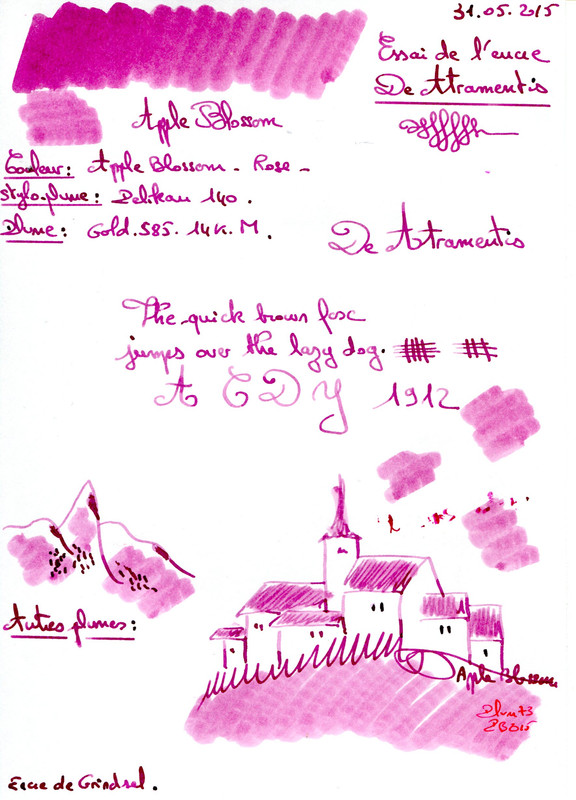 31.05.2015
Essai de l'encre
De Atramentis
Apple Blossom
Couleur: Apple Blossom - Rose -
Stylo-plume: Pelikan 140.
Plume: Gold.585. 14K. M.
De Atramentis
The quick brown fox
jumps over the lazy dog.
A C D Y 1912
Autres plumes:
Apple Blossom
Plum73
Encre de Grindsel.